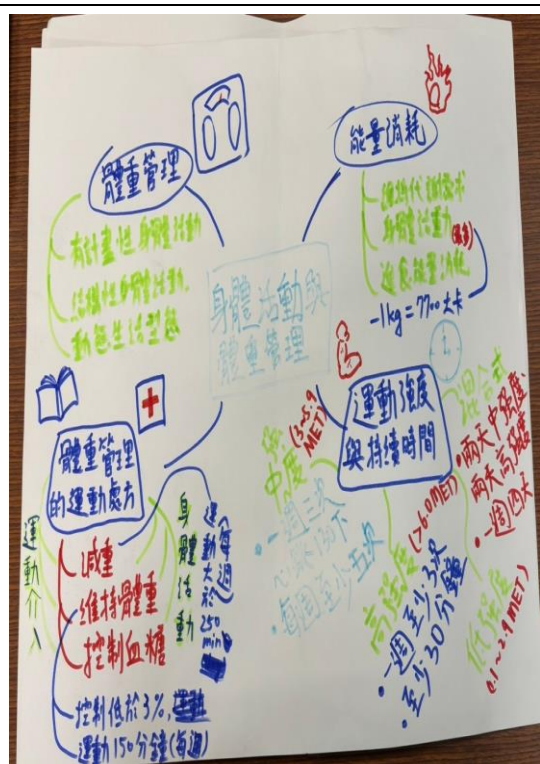 體重管理
有計畫性身體活動
結構性身體活動
動態生活型態
能量消耗
維持代謝需求
身體活動
(最多)
進食能量消耗
-1kg=7700大卡
身體活動與
體重管理
體重管理
的運動處方
運動介入
減重
維持體重
控制血糖
身體活動
運動大於250min
(每週)
控制低於3%,
運動150分鐘(每週)
運動強度
與持續時間
中強度
(3~5.9
MET)
一週三次
每周至少五次
高強度
(>6.0MET)
一週至少3次
至少30分鐘
混合式
兩天中強度,
兩天高強度
一週四天
低強度
(1.1~2.9MET)